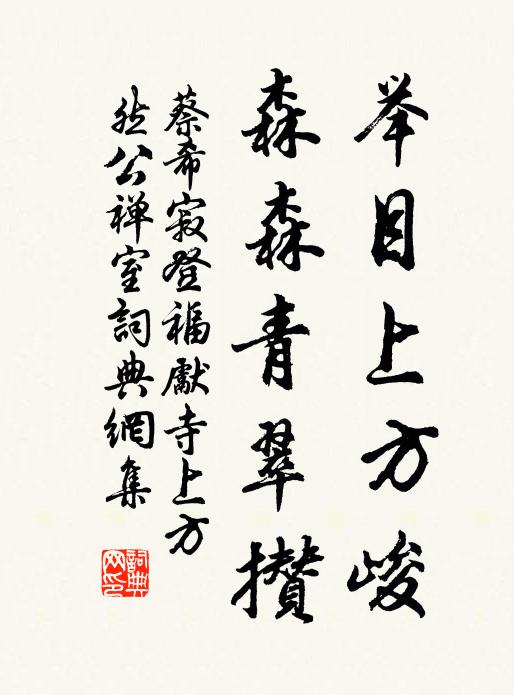 举目上方峻
森森青翠攒
蔡希寂登福獻寺上方
然公禅室詞典網集
詞典网印